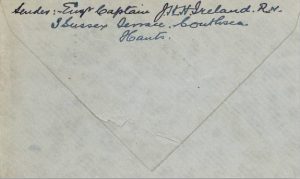 Sender:- Engr Captain J.H.H Ireland. R.N.
3 Sussex Terrace. Southsea
Hants.